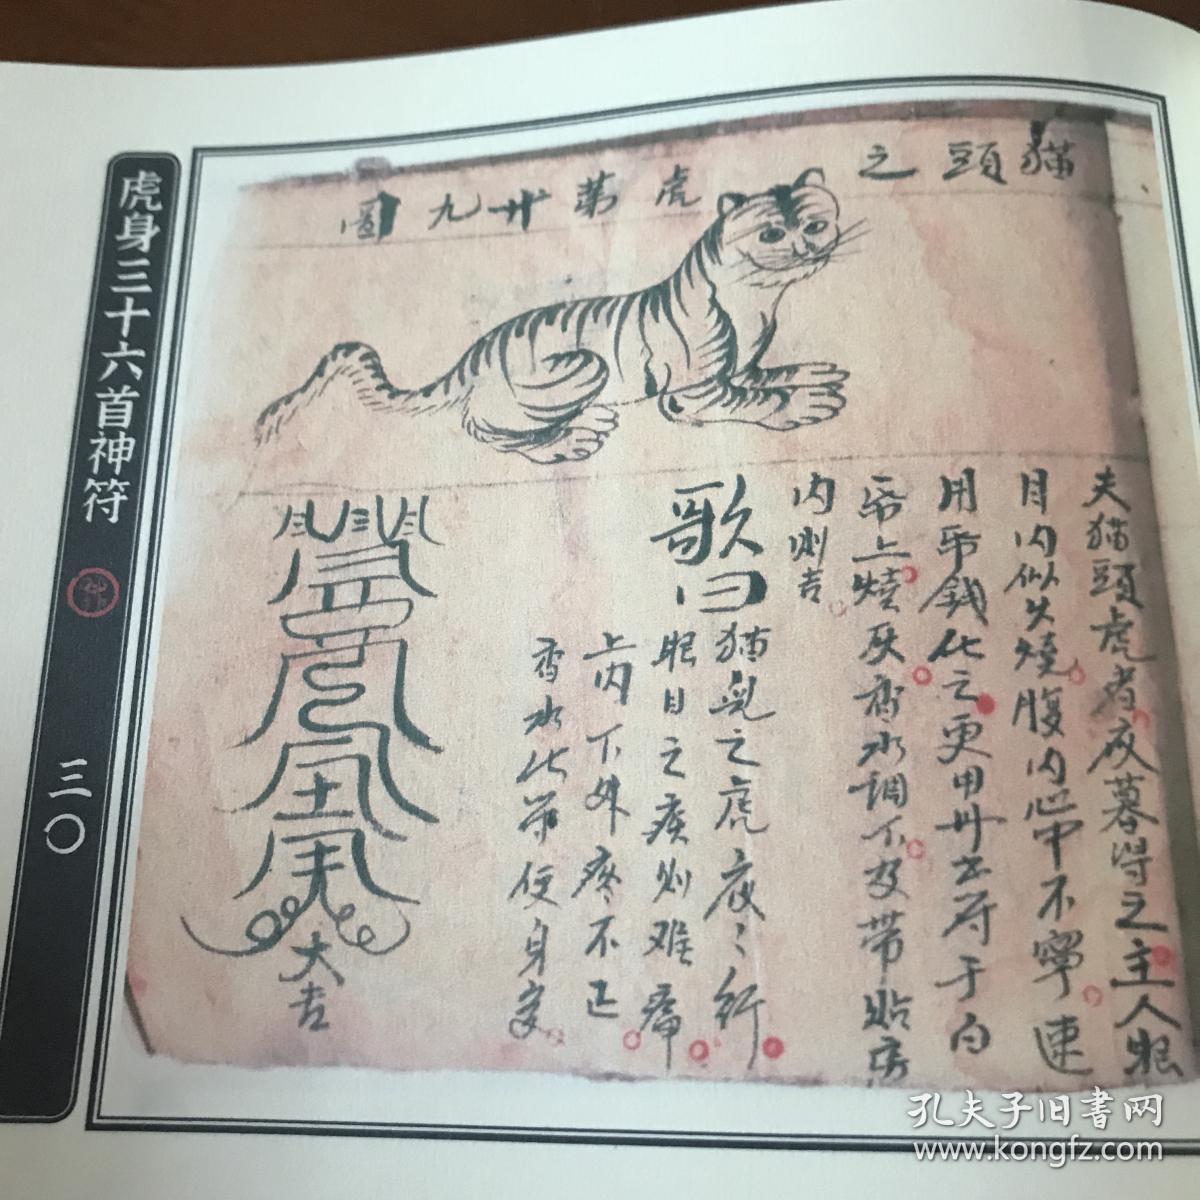 猫頭之
虎第廾九圖
夫猫頭虎者夜暮得之主人眼
目内似火燒腹内心中不寧速
用帋錢化之更用丹書符于白
帋上燒灰香水調下及帶貼房
内則吉
歌曰
猫兒之虎夜〻行
眼目之疾則难
上内下外疼不正
香水化帋便身安
大吉
虎身三十六首神符
三〇
孔夫子旧書网
www.kongfz.com